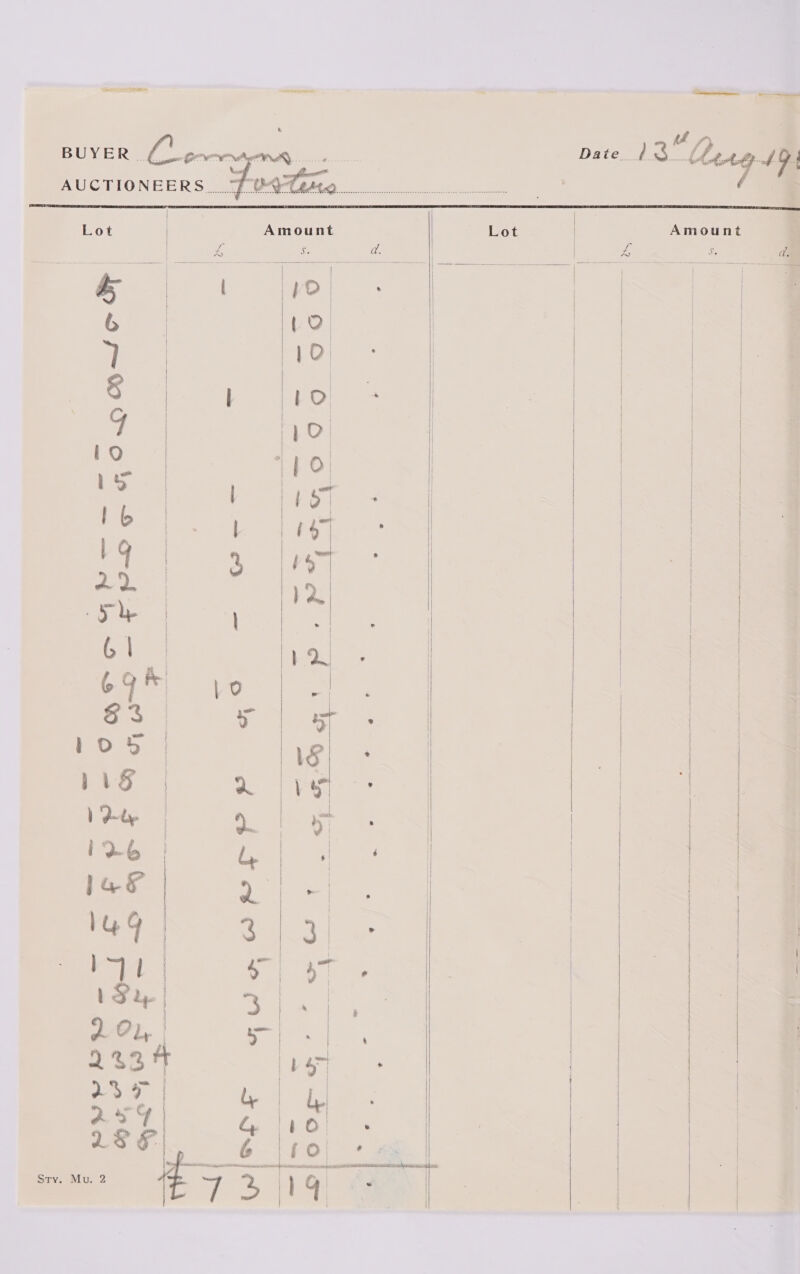 BUYER Comyns Date 13th Aug 191
AUCTIONEERS Fosters
Lot Amount Lot Amount
£ s. d. £ s. d.
5 1 10 .
6 10
7 10 .
8 1 10 .
9 10
10 10
15 1 15 .
16 1 15 .
19 3 15 .
22 12
54 1 . .
61 12 .
69A 10 - .
83 5 5 .
105 18 .
118 2 15 .
124 2 5 .
126 4 . .
148 2 - .
149 3 3 .
171 5 5 .
184 3 . .
204 5 . .
233A 15 .
235 4 4 .
259 4 10 .
288 6 10 .
Sty. Mu. 2 £73 19 -